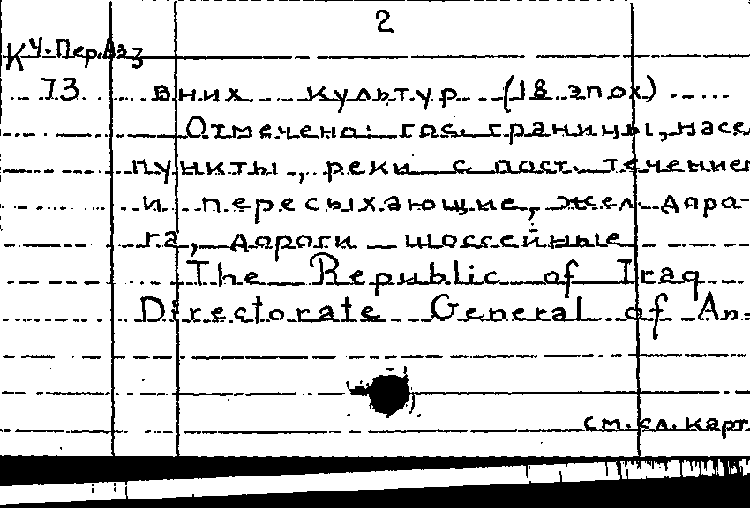 2
К Ч.Пер.Аз 3
73 вних культур (18 эпох)
Отмечено: гос. границы, насел
пункты, реки с пост. течением
и пересыхающие, жел. доро-
га, дороги шоссейные
The Republic of Iraq
Directorate General of An-
см. сл. карт